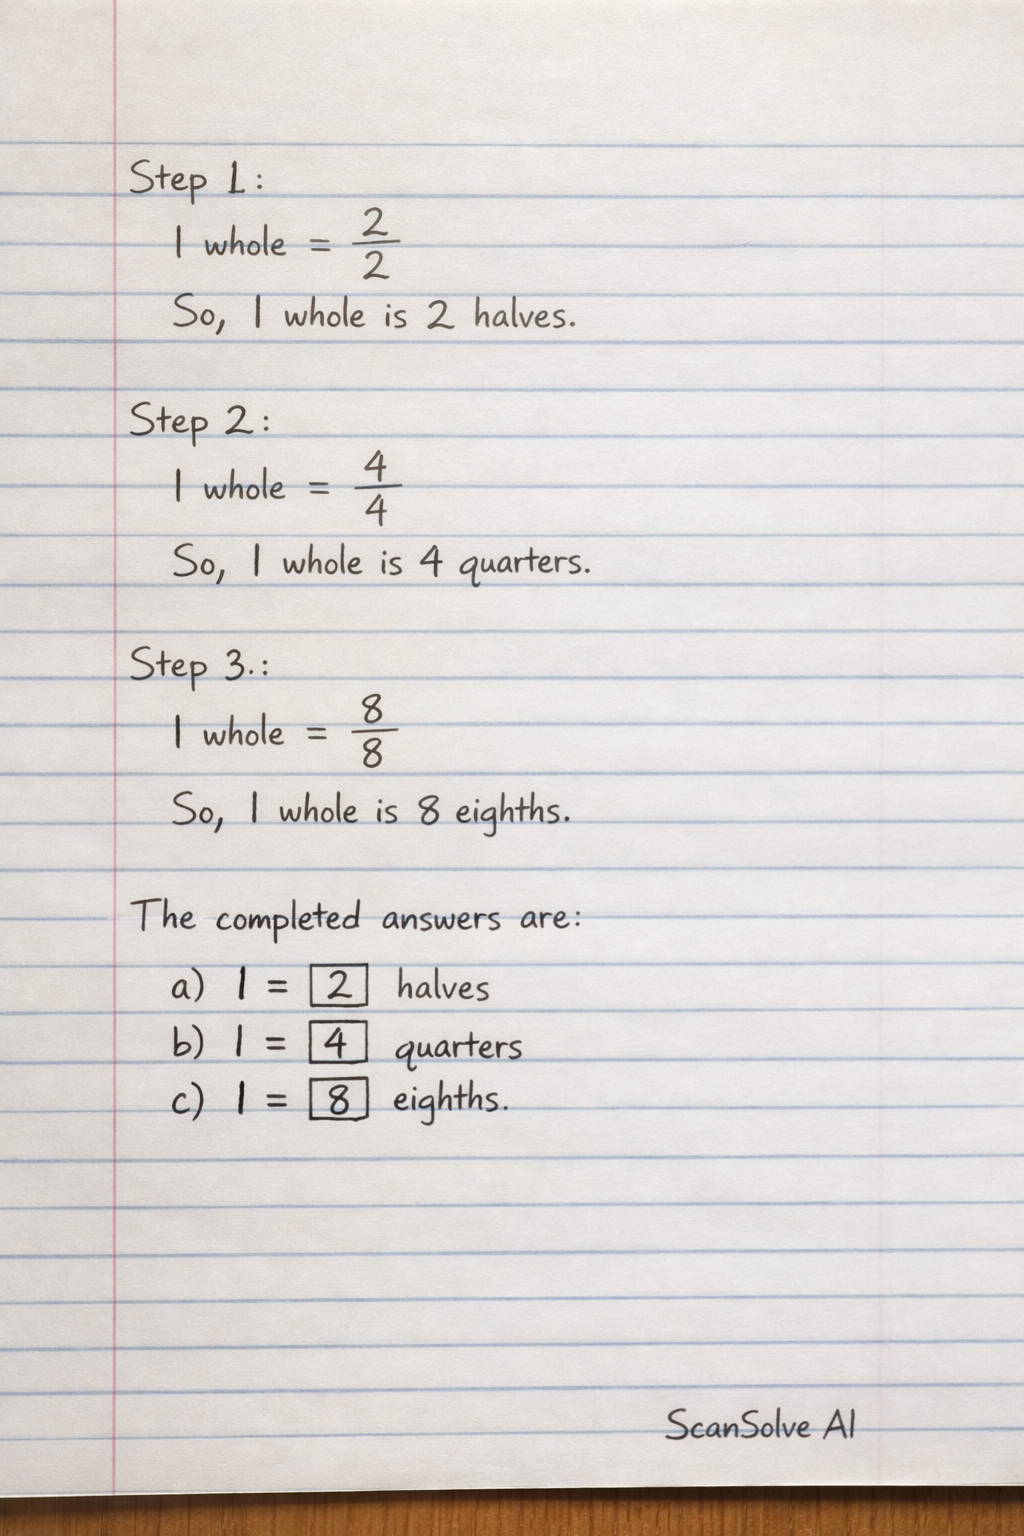 Step 1:
1 whole = 2/2
So, 1 whole is 2 halves.
Step 2:
1 whole = 4/4
So, 1 whole is 4 quarters.
Step 3.:
1 whole = 8/8
So, 1 whole is 8 eighths.
The completed answers are:
a) 1 = 2 halves
b) 1 = 4 quarters
c) 1 = 8 eighths.
ScanSolve AI